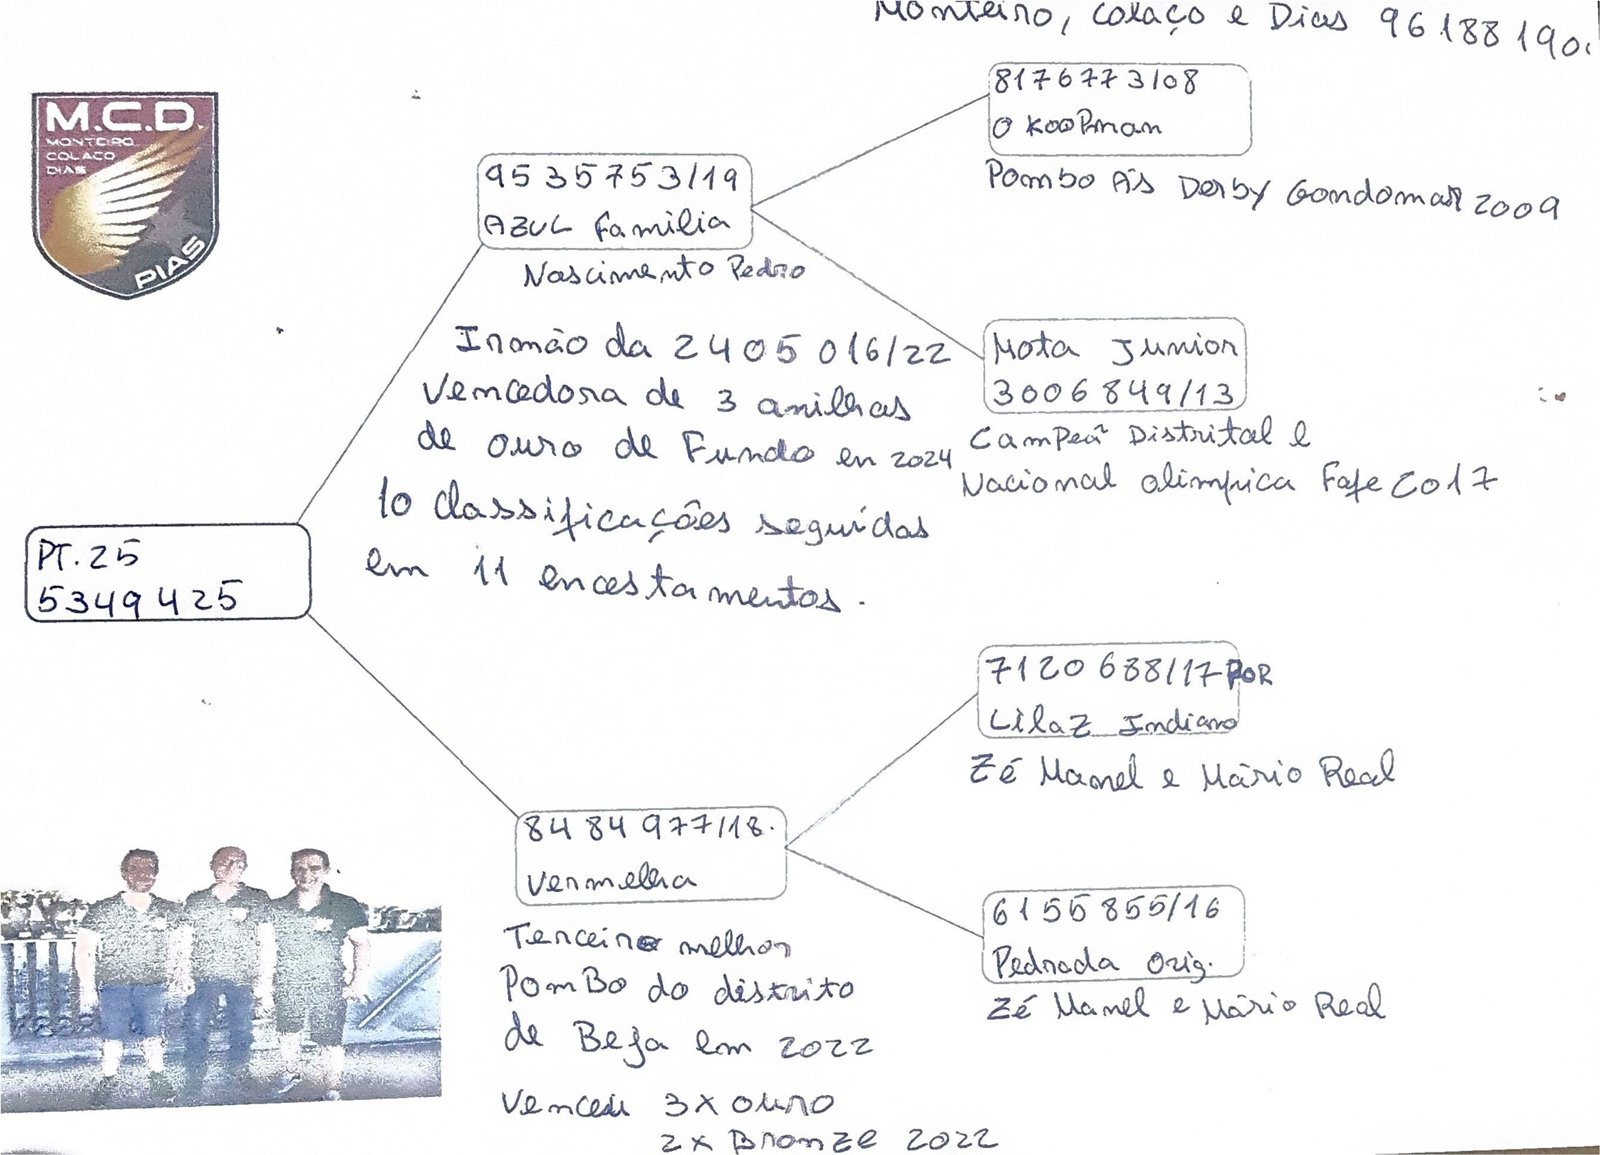 Monteiro, Colaço e Dias 96 188 190.
M.C.D.
MONTEIRO
COLAÇO
DIAS
PIAS
8176773/08
O KooPman
Pombo Ás Derby Gondomar 2009
9535753/19
AZUL familia
Nascimento Pedro
Irmão da 2405016/22
Vencedora de 3 anilhas
de ouro de Fundo en 2024
10 classificações seguidas
em 11 encestamentos.
Mota Junior
3006849/13
Campeã Distrital e
Nacional olimpica Fafe 2017
PT.25
5349425
7120688/17 POR
Lilaz Indiano
Zé Manel e Mário Real
8484977/18.
Vermelha
Terceiro melhor
PomBo do distrito
de Beja em 2022
Venceu 3x ouro
2x Bronze 2022
6155855/16
Pedrada Orig.
Zé Manel e Mário Real